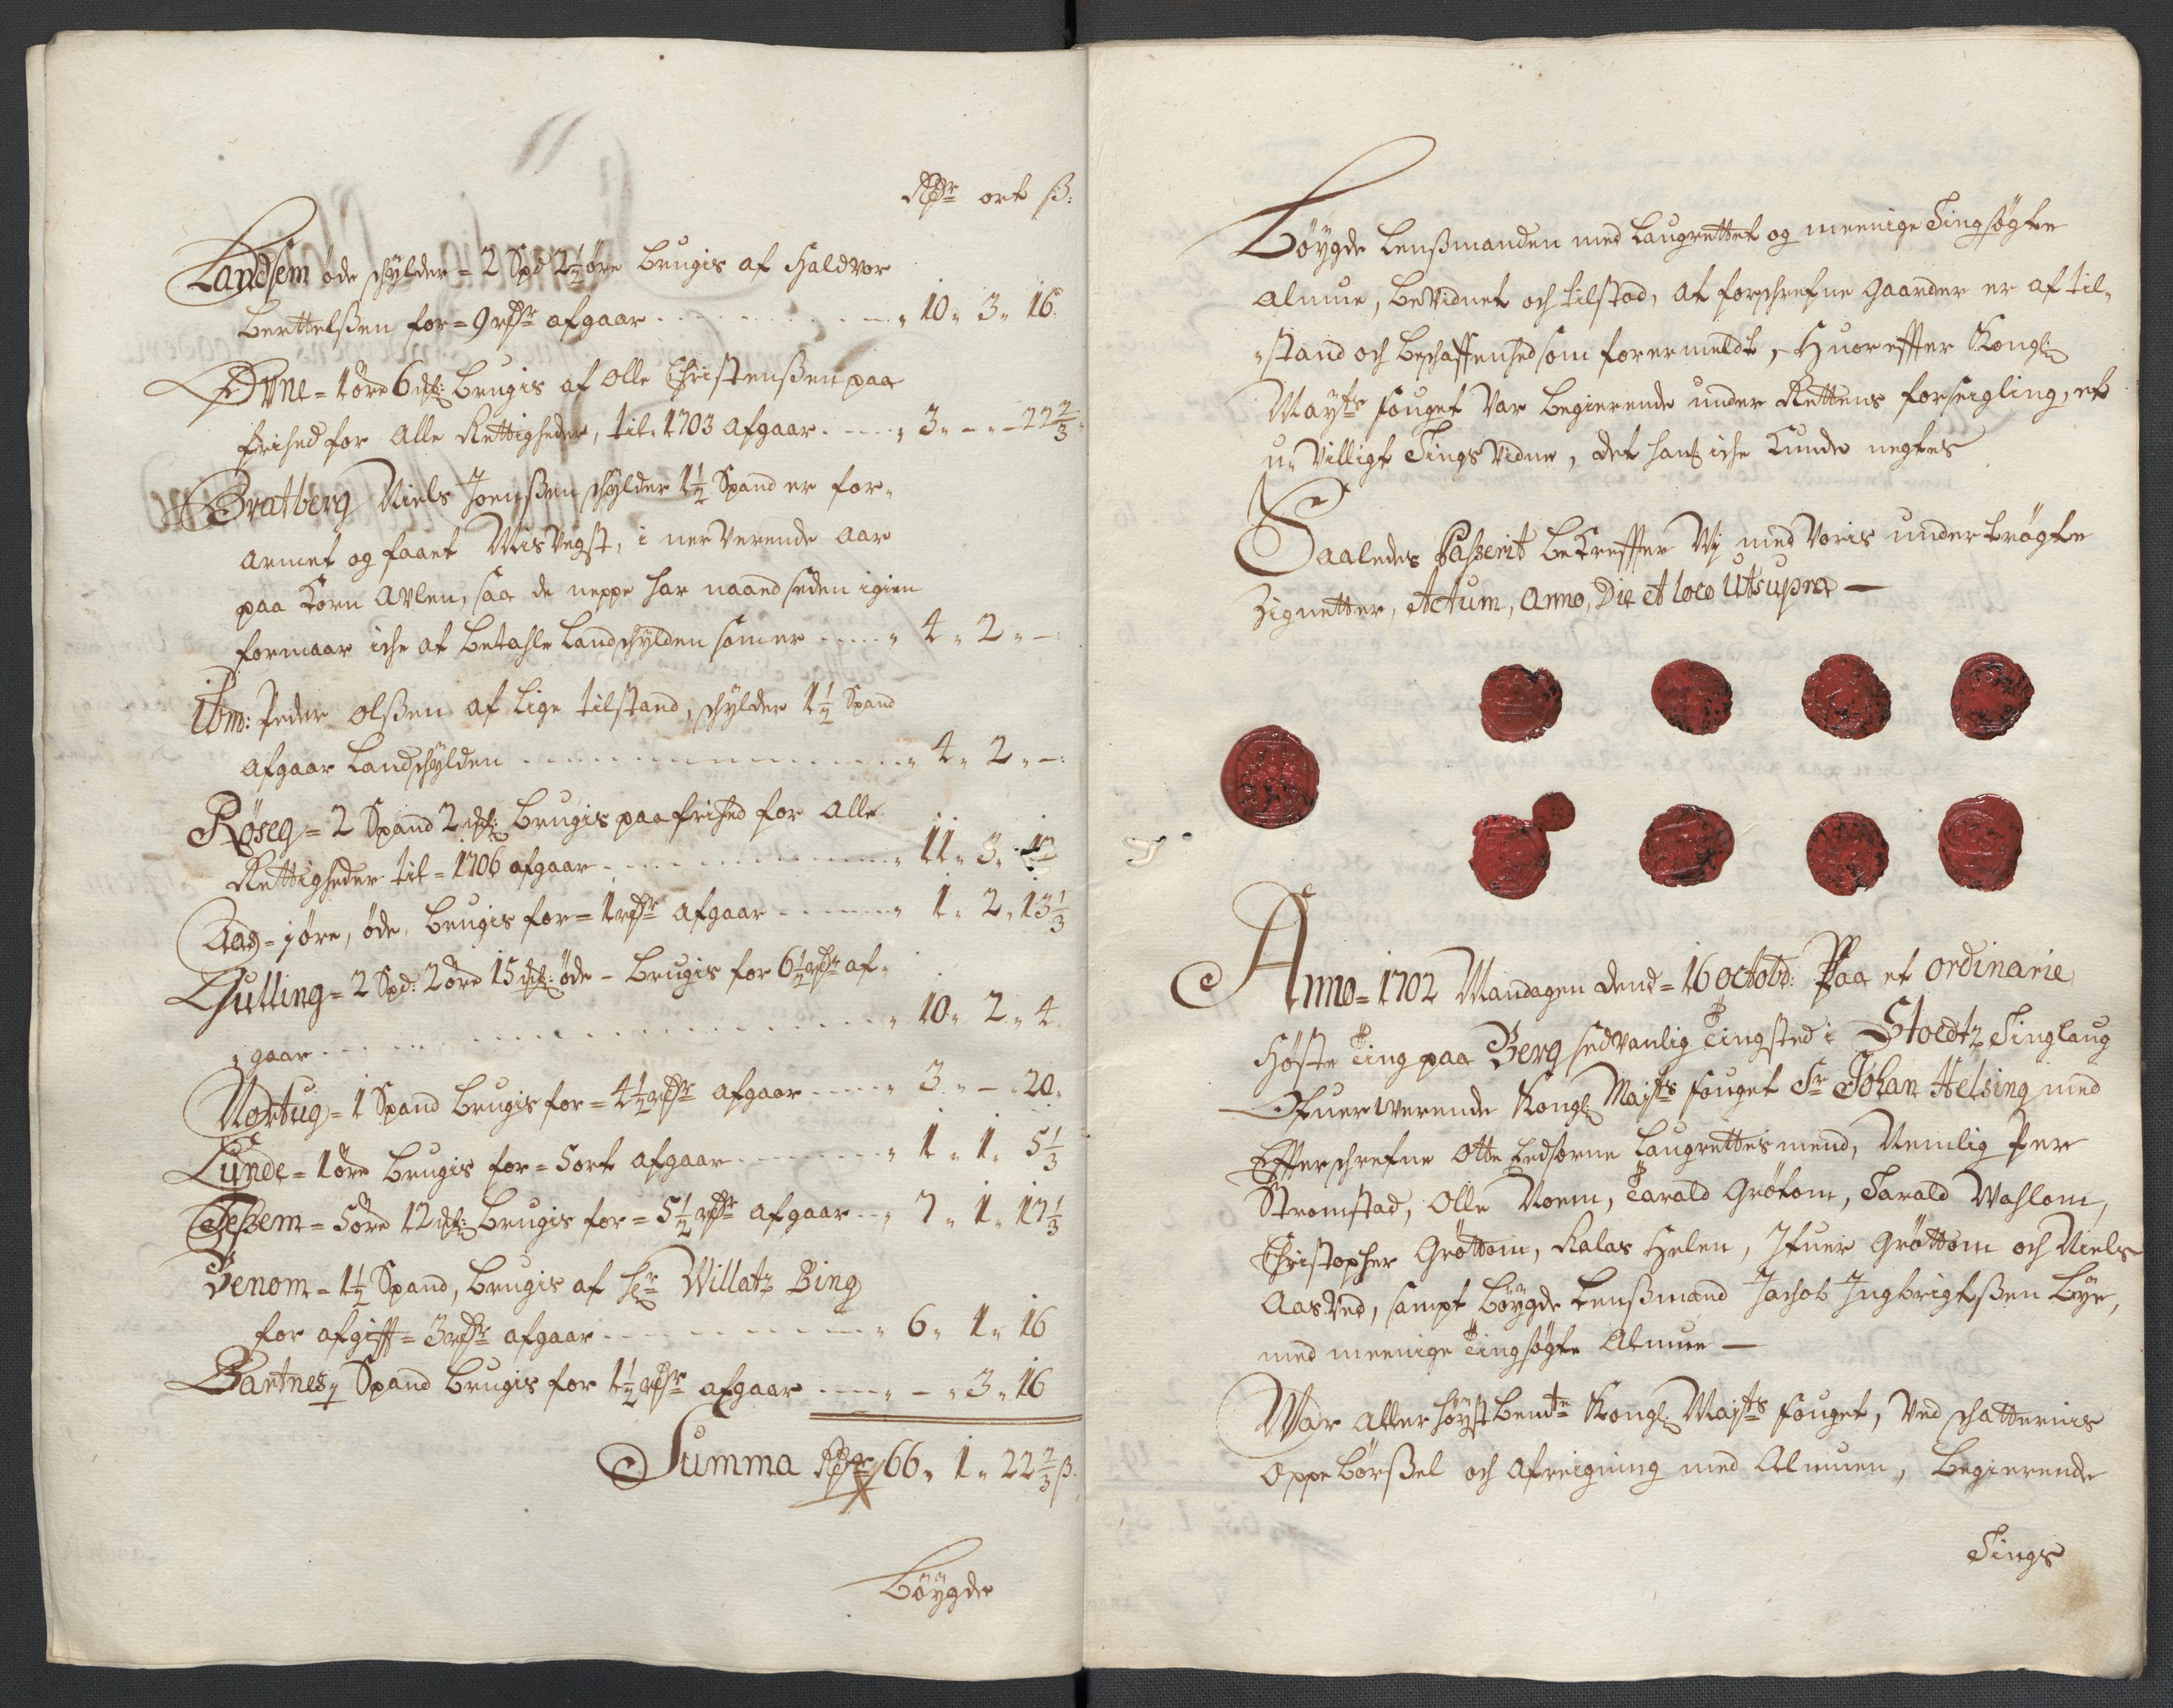 Rdr ort ß:
Landsem öde schylder = 2 Spd 2½ öre brugis af Haldvor
Berttelßen for = 9 rdr afgaar . . . . . „ 10 „ 3 „ 16
= 1 öre 6 mkl: brugis af Olle Christenßen paa
frihed for alle Rettigheder, til 1703 afgaar . . . „ 3 „ - „ 22⅔
Bratberg Niels Joenßen schylder 1½ Spand er for-
armet og faaet Misvegst, i nerverende Aar
paa Korn Avlen, saa de neppe har naaed seden igien
formaar iche at betahle Landschylden som er . . . „ 4 „ 2 „ -:
Ibm: Peder Olßen af lige tilstand, schylder 1½ Spand
afgaar Landschylden . . . . . „ 4 „ 2 „ -:
Röseg = 2 Spand 2 mkl: brugis paa frihed for alle
Rettigheder til = 1706 afgaar . . . . . „ 11 „ 3 „ 12
Aas = 1 öre, öde, brugis for = 1 rdr afgaar . . . „ 1 „ 2 „ 13⅓
Gulling = 2 Spd: 2 öre 15 mkl: öde - brugis for 6½ rdr af-
gaar . . . . . „ 10 „ 2 „ 4
Nortug = 1 Spand brugis for = 4½ rdr afgaar . . . „ 3 „ - „ 20
Lunde = 1 öre brugis for = 5 ort afgaar . . . „ 1 „ 1 „ 5⅓
Teßem = 5 öre 12 mkl: brugis for = 5½ rdr afgaar . . „ 7 „ 1 „ 17⅓
Benom = 1½ Spand, brugis af Hr Willatz Bing
for afgifft = 3 rdr afgaar . . . . . „ 6 „ 1 „ 16
Bartnes Spand brugis for 1½ rdr afgaar . . . „ - „ 3 „ 16
Summa Rdr 66 „ 1 „ 22⅔ ß.
Böygde
Böygde Lensmanden med Laugrettet og meenige Tingsögte
Almue, bevidnet och tilstod, at forschrefne Gaarder er af til-
stand och beschaffenhed som forermeldt, Huorefter Kongl:
Mayts fouget var begierende under Rettens forseigling, et
u-villigt Tings Vidne, det hans iche kunde negtes
Saaledes Paßerit bekreffter Vj med Voris undertrögte
Zignetter, Actum, Anno, Die et loco Utsupra —
Anno = 1702 Mandagen dend = 16 octobr: Paa et ordinarie
Höste Ting paa Berg sedvanlig Tingsted i Stoedtz Tinglaug
Ofuerwerende Kongl: Mayts fouget Sr Johan Helsing med
Effterschrefne Otte Eedsorne Laugrettesmend, Nemlig Per
Stromstad, Olle Noem, Tarald Grötom, Tarald Wahlom,
Christopher Gröttom, Kalas Helen, Ifuer Gröttom och Niels
Aasved, sampt Böygde Lensmand Jachob Ingbrigtßen Bye,
med meenige Tingsögte Almue —
War atter höystbemte Kongl: Mayts fouget, ved schatternis
Oppebörßel och Afreigning med Almuen, Begierende
Tings